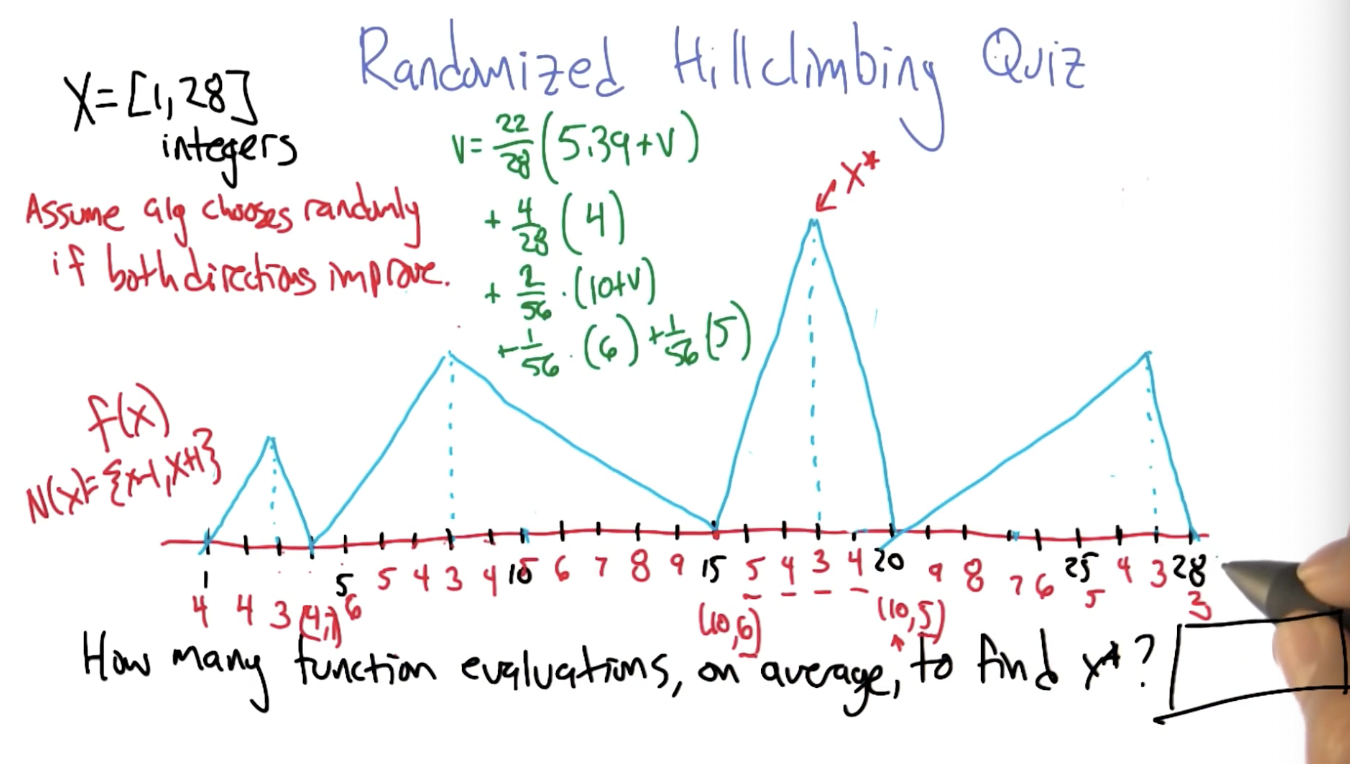 Randomized Hillclimbing Quiz
X=[1,28]
integers
Assume alg chooses randomly
if both directions improve.
v= 22/28 (5.39+v)
+ 4/28 (4)
+ 2/56 · (10+v)
+ 1/56 · (6) + 1/56 (5)
x*
f(x)
N(x)={x-1,x+1}
1 5 10 15 20 25 28
4 4 3 (4,7) 6 5 4 3 4 5 6 7 8 9 (10,6) 5 4 3 4 (10,5) 9 8 7 6 5 4 3 3
How many function evaluations, on average, to find x*?